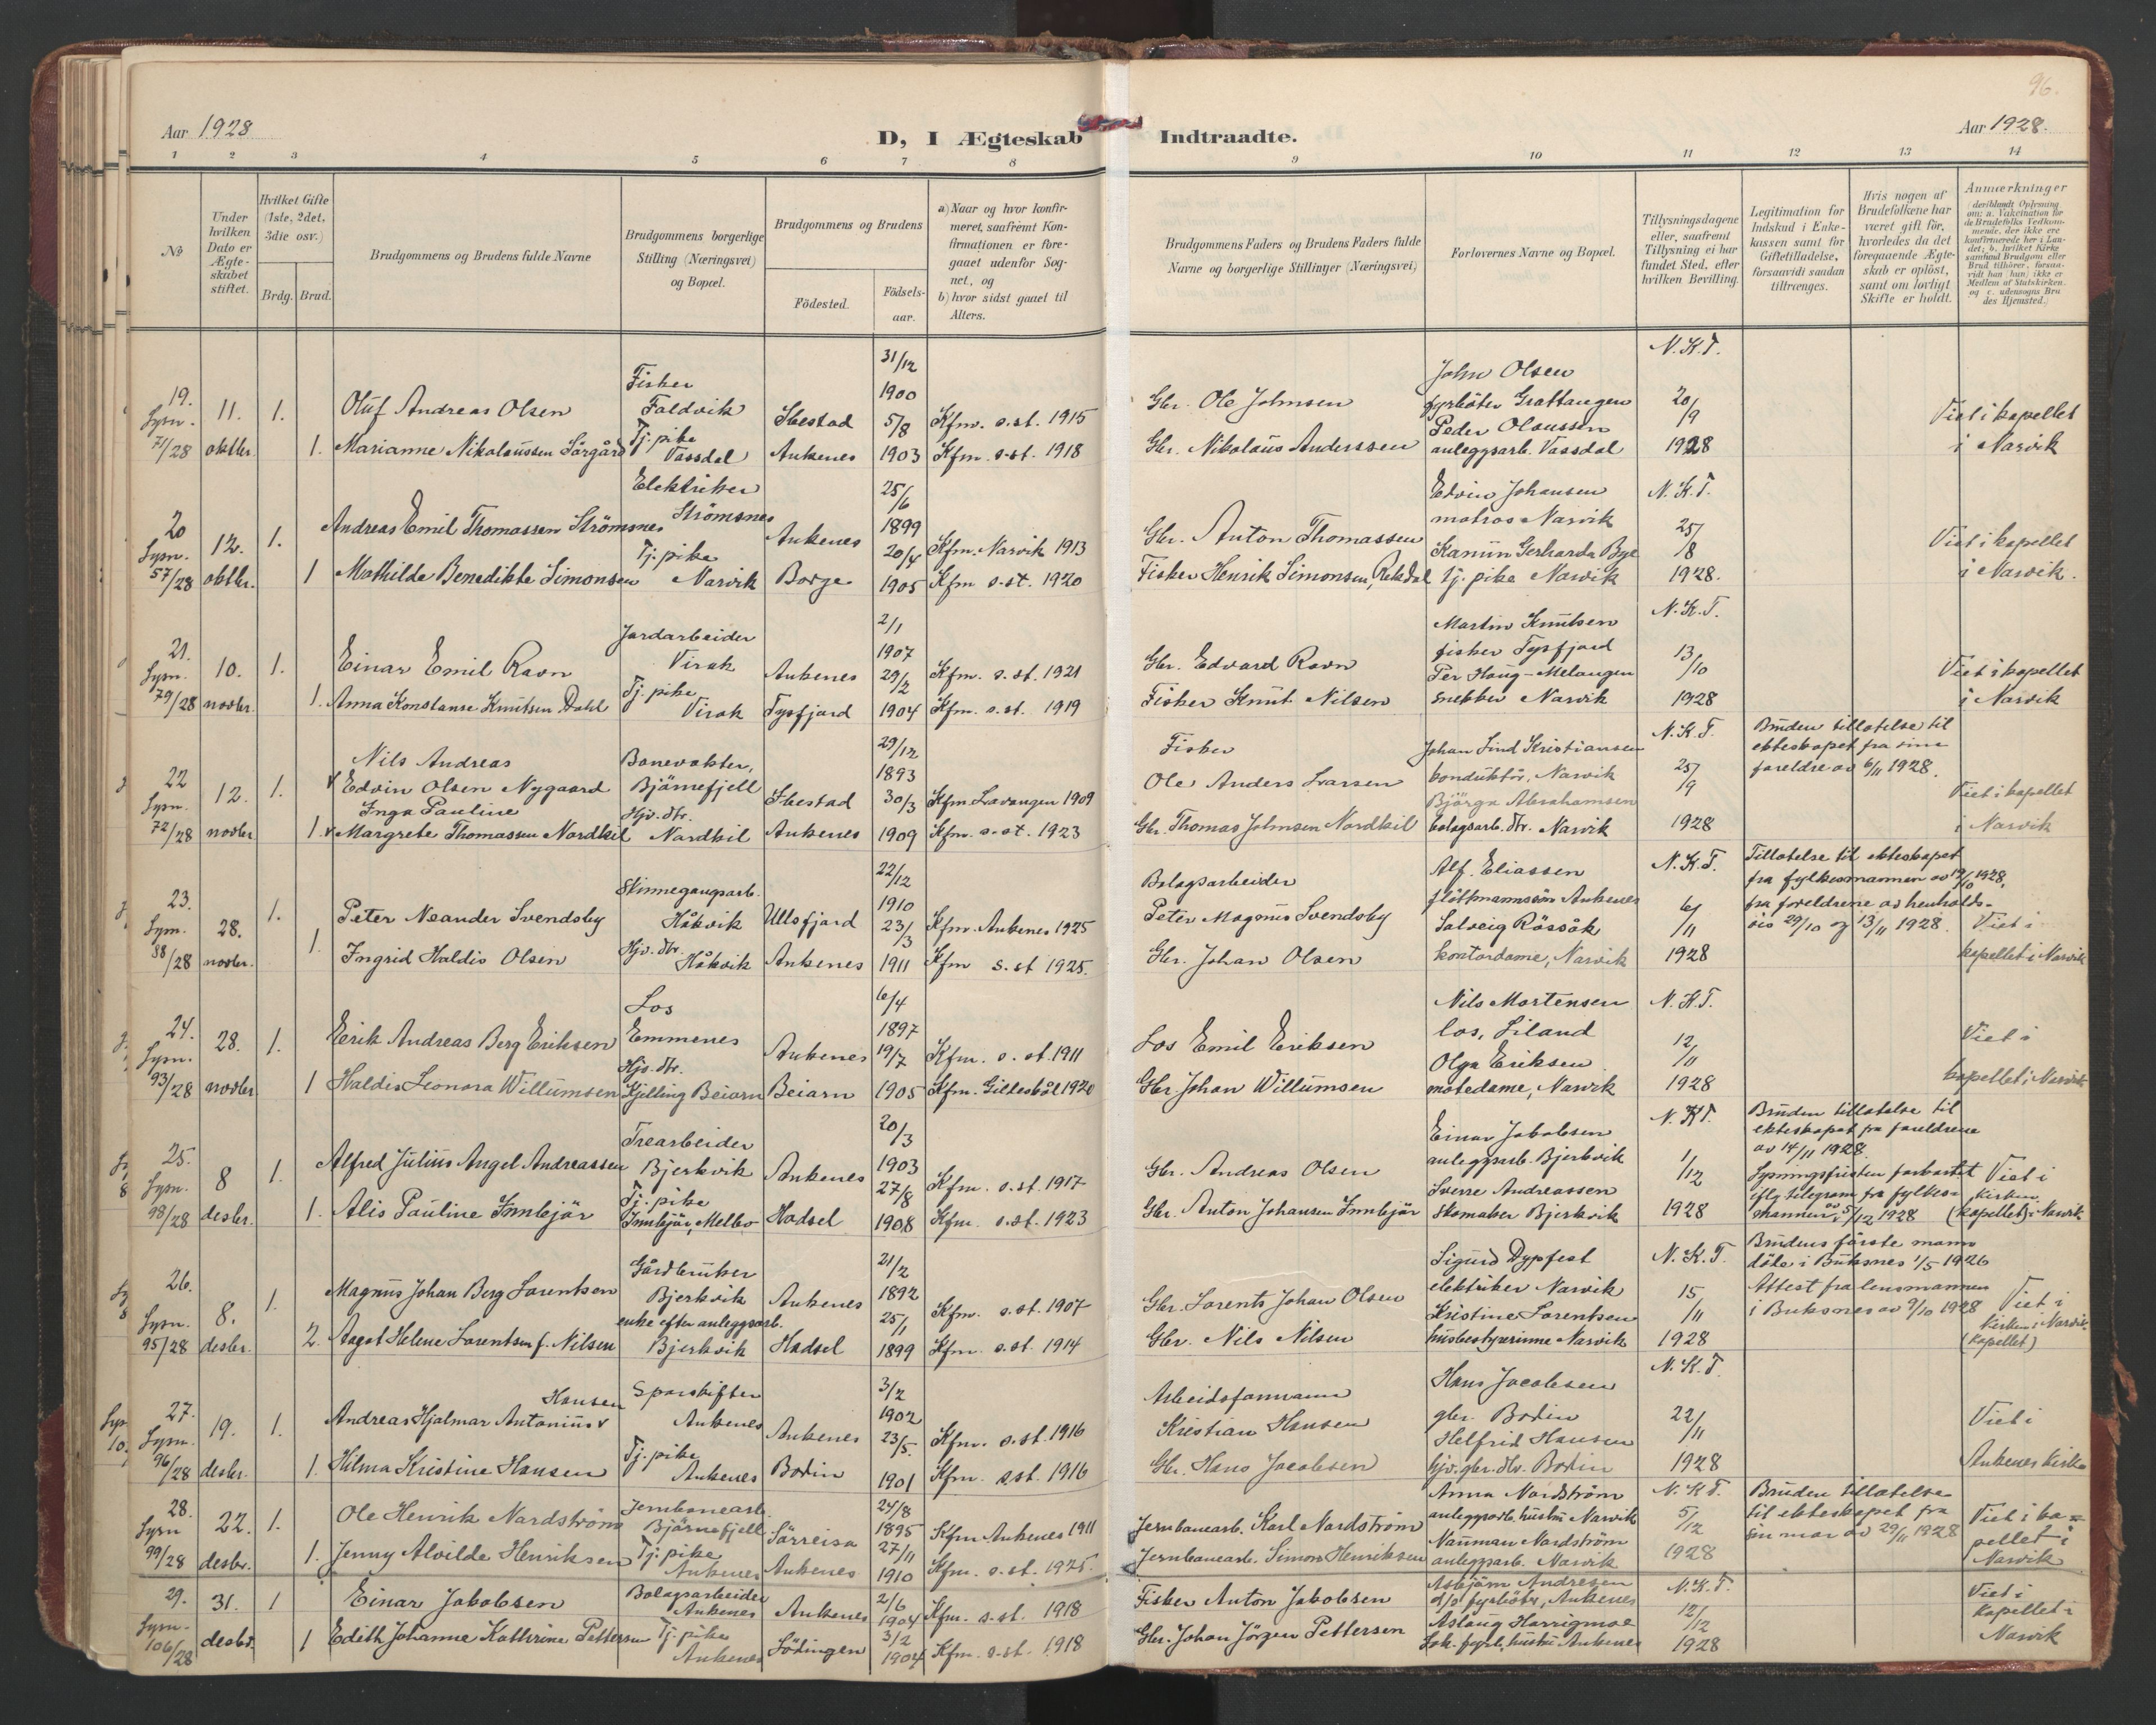 96.
Aar 1928
D, I Ægteskab Indtraadte.
Aar 1928.
1 2 3 4 5 6 7 8 9 10 11 12 13 14
No
Under hvilken Dato er Ægteskabet stiftet.
Hvilket Gifte (1ste, 2det, 3die osv.)
Brdg. Brud.
Brudgommens og Brudens fulde Navne
Brudgommens borgerlige Stilling (Næringsvei) og Bopæl.
Brudgommens og Brudens
Födested.
Födselsaar.
a) Naar og hvor konfirmeret, saafremt Konfirmationen er foregaaet udenfor Sognet, og
b) hvor sidst gaaet til Alters.
Brudgommens Faders og Brudens Faders fulde Navne og borgerlige Stillinger (Næringsvei)
Forlovernes Navne og Bopæl.
Tillysningsdagene eller, saafremt Tillysning ei har fundet Sted, efter hvilken Bevilling.
Legitimation for Indskud i Enkekassen samt for Giftetilladelse, forsaavidt saadan tiltrænges.
Hvis nogen af Brudefolkene har været gift för, hvorledes da det foregaaende Ægteskab er oplöst, samt om lovligt Skifte er holdt.
Anmærkninger (deriblandt Oplysning om: a. Vakcination for de Brudefolks Vedkommende, der ikke ere konfirmerede her i Landet; b. hvilket Kirkesamfund Brudgom eller Brud tilhörer, forsaavidt han (hun) ikke er Medlem af Statskirken, og c. udensogns Brudes Hjemsted.)
19. Lysn. 71/28
11. oktbr.
1. Oluf Andreas Olsen
Fisker Foldvik
Ibestad
31/12 1900
Kfm. s.st. 1915
Gbr. Ole Johnsen
John Olsen fyrböter Grattangen
N.K.T. 20/9 1928
Viet i kapellet i Narvik
1. Marianne Nikolaussen Sörgård
Tj. pike Vassdal
Ankenes
5/8 1903
Kfm. s.st. 1918
Gbr. Nikolaus Anderssen
Peder Olaussen anleggsarb. Vassdal
20 Lysn. 57/28
12. oktbr.
1. Andreas Emil Thomassen Strömsnes
Elektriker Strömsnes
Ankenes
25/6 1899
Kfm. Narvik 1913
Gbr. Anton Thomassen
Edvin Johansen matros Narvik
N.K.T. 25/8 1928.
Viet i kapellet i Narvik.
1 Mathilde Benedikte Simonsen
Tj. pike Narvik
Borge
20/4 1905
Kfm s.st. 1920
Fisker Henrik Simonsen, Rekdal
Gerharda Bye tj. pike Narvik
21. Lysn. 79/28
10. novbr.
1. Einar Emil Ravn
Jordarbeider Virak
Ankenes
2/1 1907
Kfm. s.st. 1921
Gbr. Edvard Ravn
Martin Knutsen fisker Tysfjord
N.K.T. 13/10 1928
Viet i kapellet i Narvik
1. Anna Konstanse Knutsen Dahl
Tj. pike Virak
Tysfjord
29/2 1904
Kfm. s.st. 1919
Fisker Knut Nilsen
Per Haug-Melangen snekker Narvik
22 Lysn. 72/28
12. novbr
1. Nils Andreas Edvin Olsen Nygaard
Banevokter, Björnefjell
Ibestad
29/12 1893
Kfm Lavangen 1909
Fisker Ole Anders Larsen
Johan Lind Kristiansen konduktör, Narvik
N.K.T. 25/9 1928
Bruden tillatelse til ekteskapet fra sine foreldre av 6/11 1928.
Viet i kapellet i Narvik
1. Inga Pauline Margrete Thomassen Nordkil
Hjv. dtr. Nordkil
Ankenes
30/3 1909
Kfm. s.st. 1923
Gbr. Thomas Johnsen Nordkil
Björga Abrahamsen bolagsarb. dtr. Narvik
23. Lysn. 88/28
28. novbr.
1. Peter Neander Svendsby
Skinnegangsarb. Håkvik
Ullsfjord
22/12 1910
Kfm. Ankenes 1925
Bolagsarbeider Peter Magnus Svendsby
Alf. Eliassen flöttmannssön Ankenes
N.K.T. 6/11 1928
Tillatelse til ekteskapet fra fylkesmannen av 19/10 1928, fra foreldrene av henholdsvis 29/10 og 13/11 1928.
Viet i kapellet i Narvik
1. Ingrid Haldis Olsen
Hjv. dtr. Håkvik
Ankenes
23/3 1911
Kfm s.st 1925.
Gbr. Johan Olsen
Solveig Rössök kontordame, Narvik
24. Lysn. 93/28
28. novbr
1. Erik Andreas Berg Eriksen
Los Emmenes
Ankenes
6/4 1897
Kfm. s.st. 1911
Los Emil Eriksen
Nils Mortensen los, Liland
N.K.T. 12/11 1928
Viet i kapellet i Narvik
1 Haldis Leonora Willumsen
Hjv. dtr. Kjelling Beiarn
Beiarn
19/7 1905
Kfm. Gildeskål 1920
Gbr Johan Willumsen
Olga Eriksen motedame, Narvik
25. Lysn. 98/28
8 desbr.
1. Alfred Julius Angel Andreassen
Trearbeider Bjerkvik
Ankenes
20/3 1903
Kfm. s.st. 1917
Gbr. Andreas Olsen
Einar Jakobsen anleggsarb. Bjerkvik
N.K.T. 1/12 1928
Bruden tillatelse til ekteskapet fra foreldrene av 14/11 1928. Lysningsfristen forkortet iflg telegram fra fylkesmannen av 5/12 1928
Viet i kirken (kapellet) i Narvik
1. Alis Pauline Innlejär
Tj. pike Innlejär, Melbo
Hadsel
27/8 1908
Kfm. s.st. 1923
Gbr. Anton Johansen Innlejär
Sverre Andreassen skomaker Bjerkvik
26. Lysn. 95/28
8. desbr.
1. Magnus Johan Berg Lorentsen
Gårdbruker Bjerkvik
Ankenes
21/2 1892
Kfm. s.st. 1907
Gbr. Lorents Johan Olsen
Sigurd Dypfest elektriker Narvik
N.K.T 15/11 1928
Brudens förste mann döde i Buksnes 1/5 1926 Attest fra lensmannen i Buksnes av 9/10 1928
Viet i kirken i Narvik (kapellet)
2. Aagot Helene Lorentsen f. Nilsen
enke efter anleggsarb. Bjerkvik
Hadsel
25/1 1899
Kfm. s.st. 1914
Gbr. Nils Nilsen
Kristine Lorentsen husbestyrerinne Narvik
27. Lysn. 96/28
19. desbr.
1. Andreas Hjalmar Antonius Hansen
Sporskifter Ankenes
Ankenes
3/2 1902
Kfm. s.st. 1916
Arbeidsformann Kristian Hansen
Hans Jacobsen gbr. Bodin
N.K.T. 22/11 1928
Viet i Ankenes kirke
1. Hilma Kristine Hansen
Tj. pike Ankenes
Bodin
23/5. 1901
Kfm. s.st. 1916
Gbr. Hans Jacobsen
Helfrid Hansen hjv. gbr. dtr. Bodin
28. Lysn 99/28
22. desbr.
1. Ole Henrik Nordström
Jernbanearb. Björnefjell
Sörreisa
24/8 1895
Kfm Ankenes 1911
Jernbanearb. Karl Nordström
Anna Nordström anleggsarb. hustru Narvik
N.K.T. 5/12 1928
Bruden tillatelse til ekteskapet fra sin mor av 29/11 1928
Viet i kapellet i Narvik
1. Jenny Alvilde Henriksen
Tj. pike Ankenes
Ankenes
27/11 1910
Kfm. s.st. 1925.
Jernbanearb. Simon Henriksen
Nauman Nordström anleggsarb. Narvik
29. Lysn. 106/28
31. desbr.
1 Einar Jakobsen
Bolagsarbeider Ankenes
Ankenes
2/6 1904
Kfm. s.st. 1918
Fisker Anton Jakobsen
Asbjörn Andresen d/s fyrböter, Ankenes
N.K.T. 12/12 1928
Viet i kapellet i Narvik
1 Edith Johanne Kathrine Pettersen
Tj. pike Ankenes
Lödingen
3/2 1904
Kfm. s.st. 1918
Gbr. Johan Jörgen Pettersen
Aslaug Harrigmoe lok. fyrb. hustru Ankenes